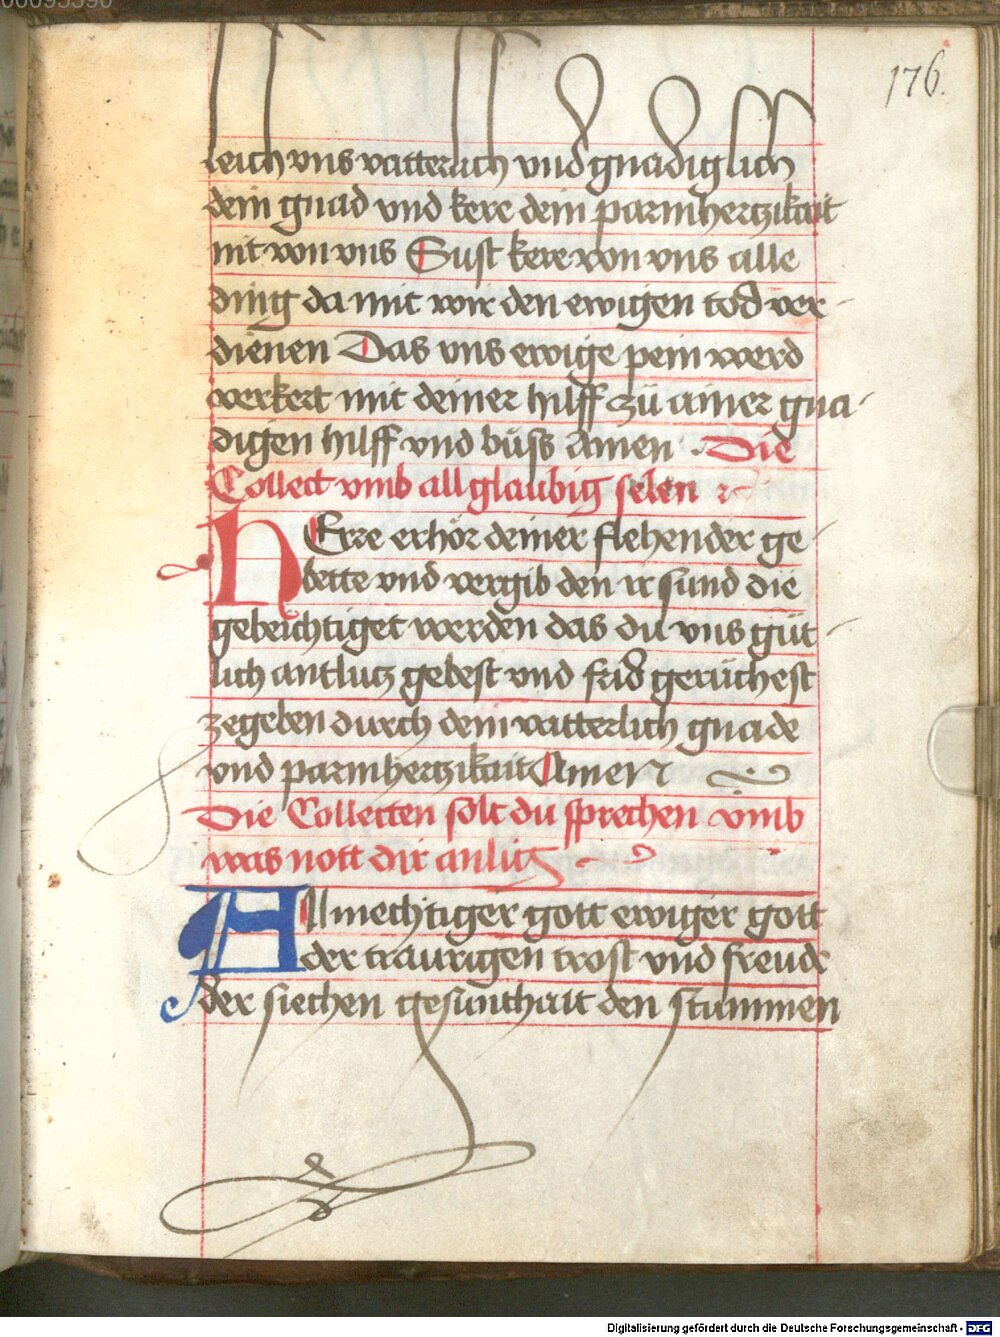 00095390
176.
leich vns vatterlich vnd gnadiglich
dein gnad vnd kere dein parmhertzikait
nit von vns Sust kere von vns alle
ding da mit wir den ewigen tod ver-
dienen Das vns ewige pein werd
verkert mit deiner hilff zü ainer gna-
digen hilff vnd büss Amen · Die
Collect vmb all glaubig selen
HErre erhör deiner flehender ge-
bette vnd vergib den ir sünd die
gebeichtiget werden das du vns güt-
lich antlucz gebest vnd frid gerüchest
zegeben durch dein vatterlich gnade
vnd parmhertzikait Amen
Die Collecten solt du sprechen vmb
was nott dir anligt
Allmechtiger gott ewiger gott
der traurigen trost vnd freude
der siechen gesunthait den stummen
Digitalisierung gefördert durch die Deutsche Forschungsgemeinschaft - DFG